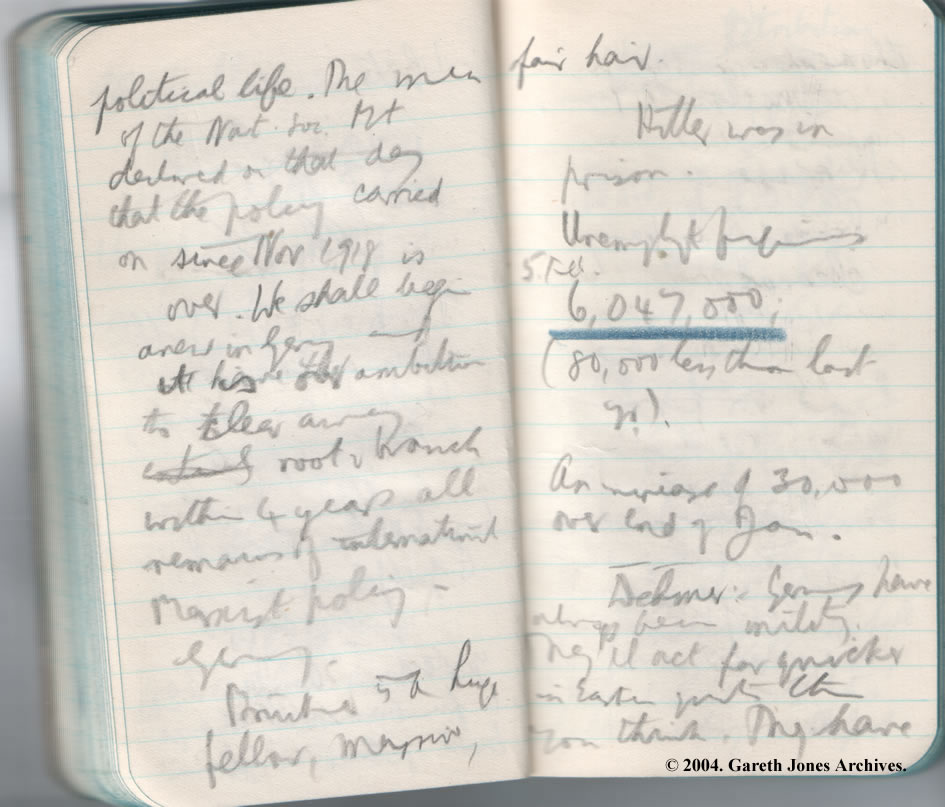 political life. The men
of the Nat. Soc. Mt
declared on that day
that the policy carried
on since Nov 1918 is
over. We shall begin
anew in Germy and
have the ambition
to clear away
root & branch
within 4 years all
remains of international
Marxist policy -
Germy.
is a huge
fellow, massive,
fair hair.
Hitler was in
prison.
Unemplyt figures
5. Feb.
6,047,000.
(80,000 less than last
yr.).
An increase of 30,000
over end of Jan.
: Germs have
always been
They'll act far quicker
in Eastern than
you think. They have
© 2004. Gareth Jones Archives.